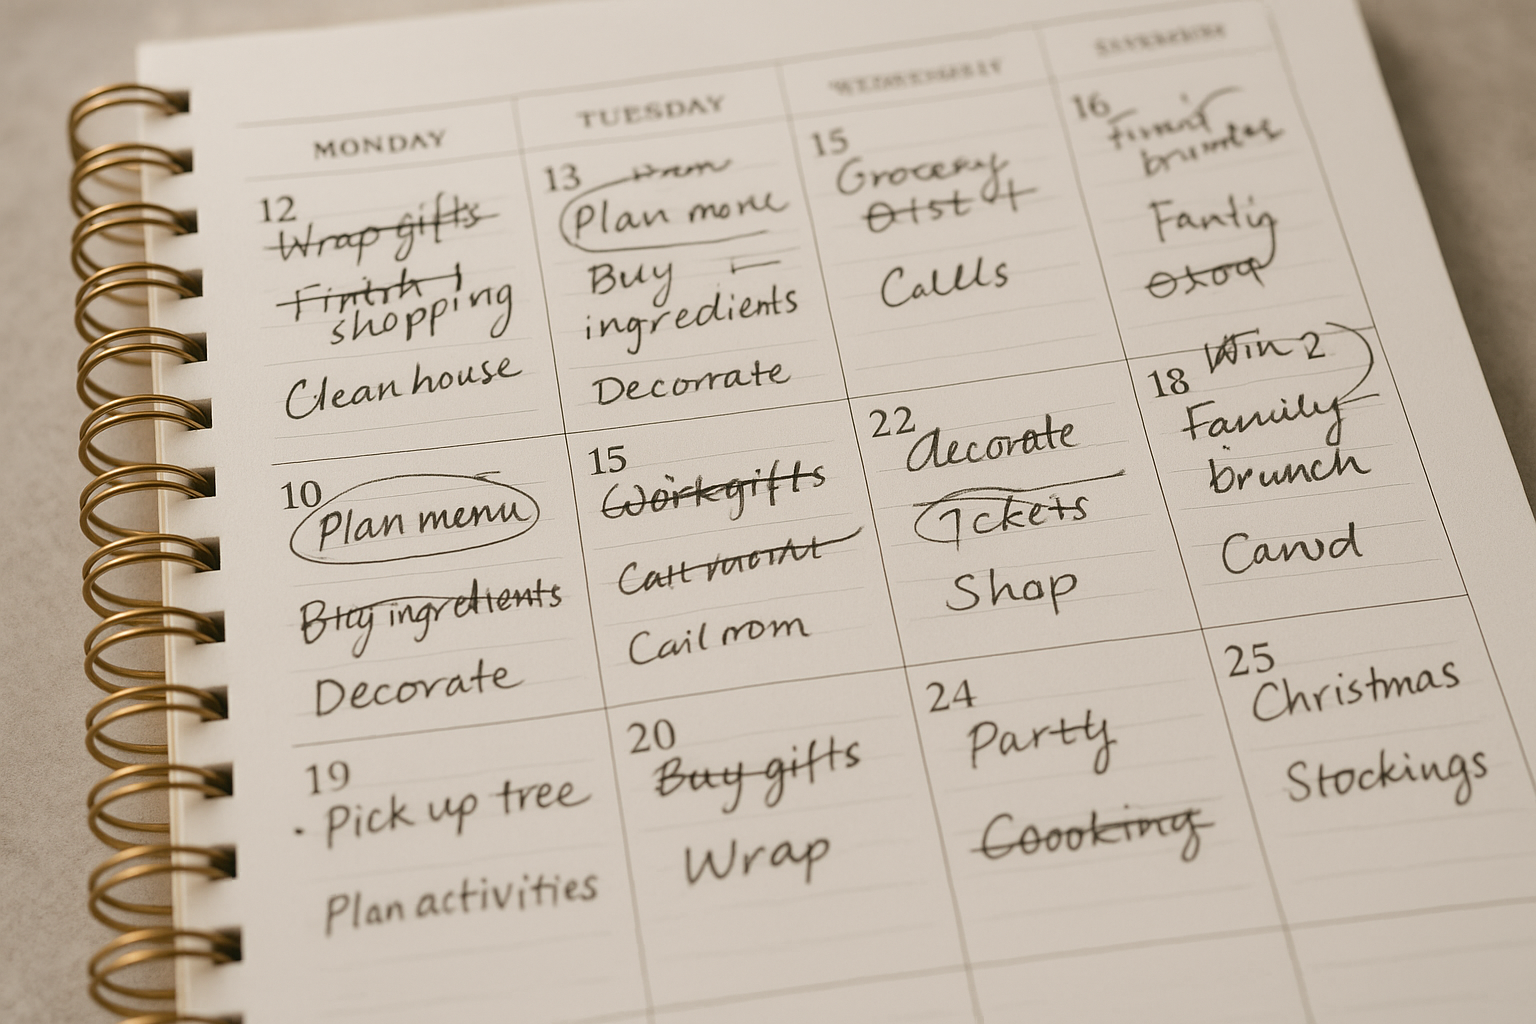 MONDAY
TUESDAY
12
Wrap gifts
shopping
Clean house
13
Plan more
Buy
ingredients
Decorrate
15
Grocery
Calls
16
Fantig
10
Plan menu
Buy ingredients
Decorate
15
Work gifts
Cail mom
22
decorate
Tckets
Shop
Win 2
18
Family
brunch
19
Pick up tree
Plan activities
20
Buy gifts
Wrap
24
Party
Coooking
25
Christmas
Stockings